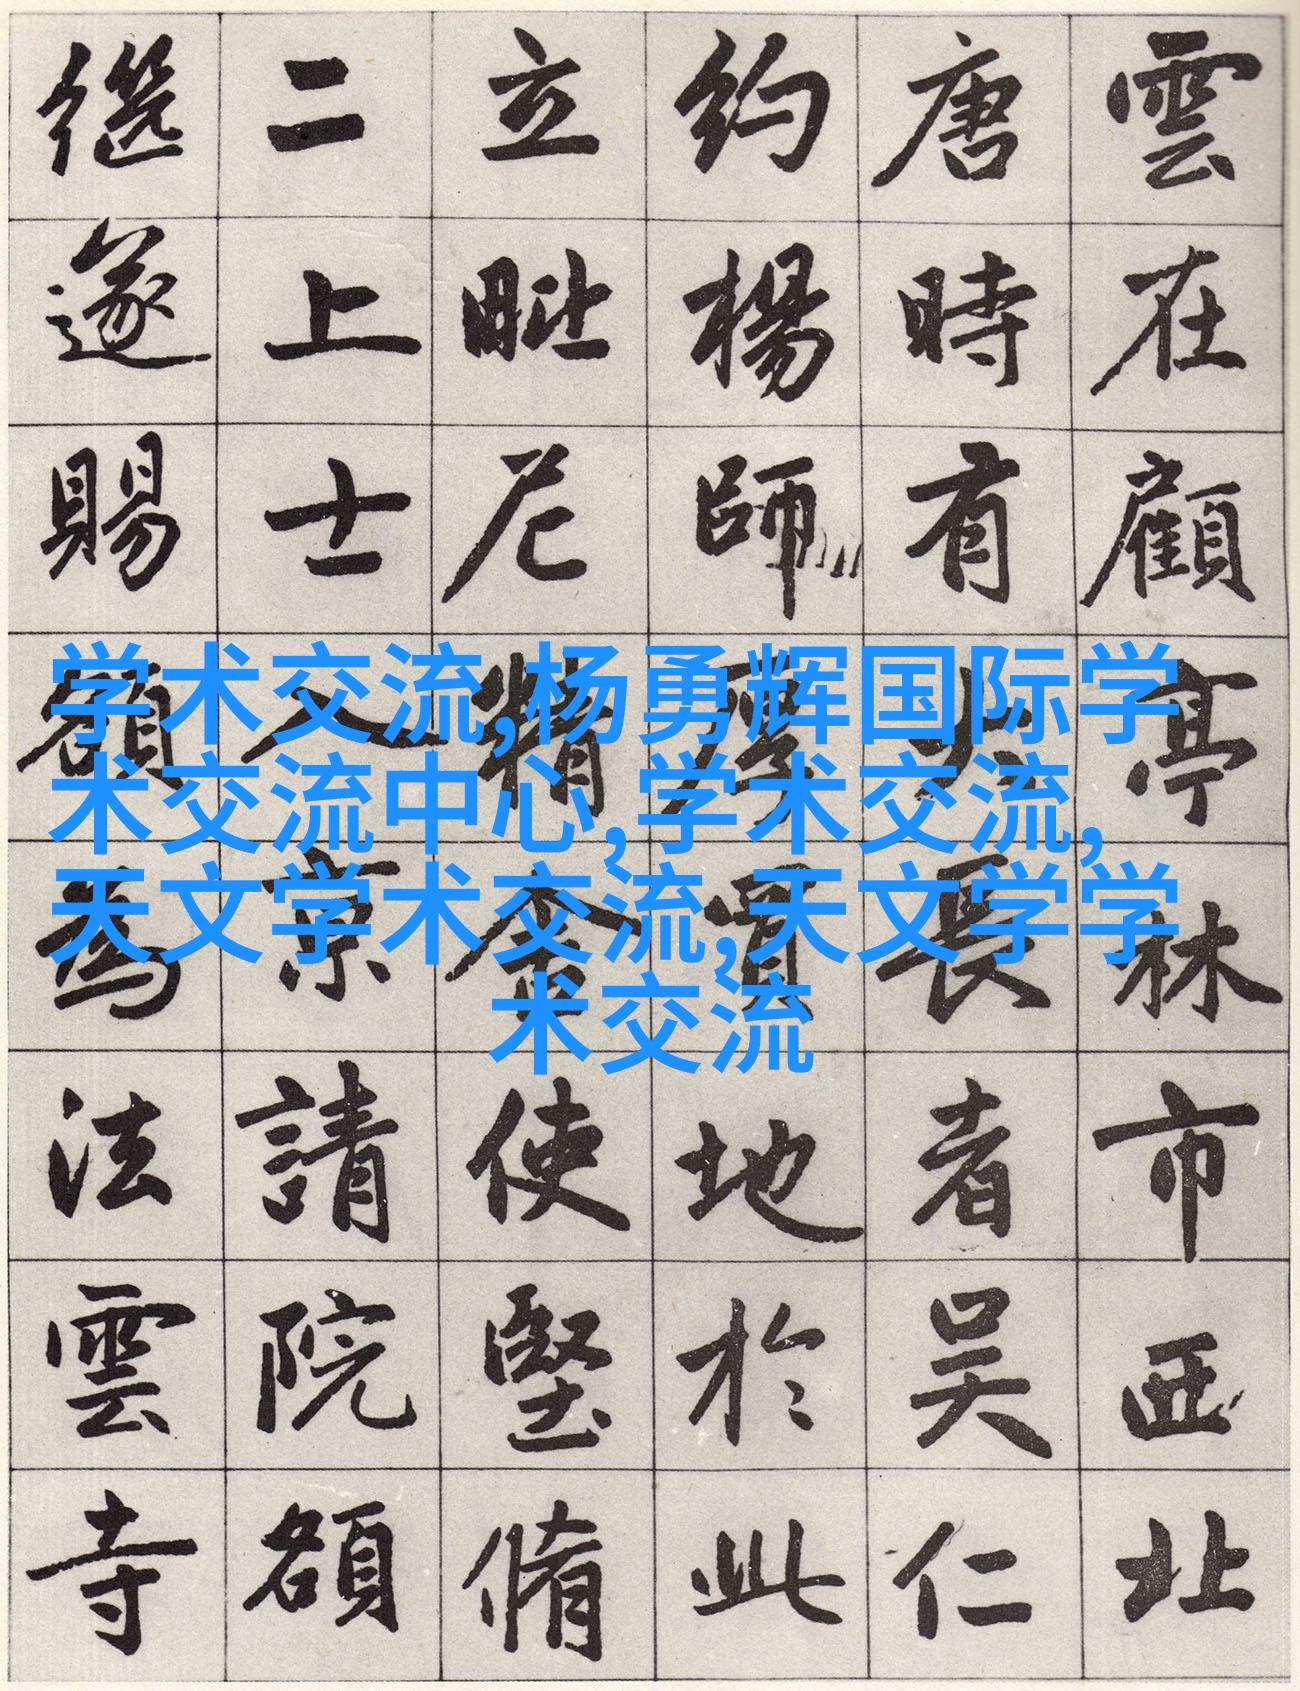 学术交流,杨勇辉国际学
术交流中心,学术交流,
天文学术交流,天文学学
术交流
雲在顧亭林市西北
唐時有長者吳仁
約楊師買地於此
立毗尼精舍使堅脩
二上士入京請院額
遂賜額為法雲寺